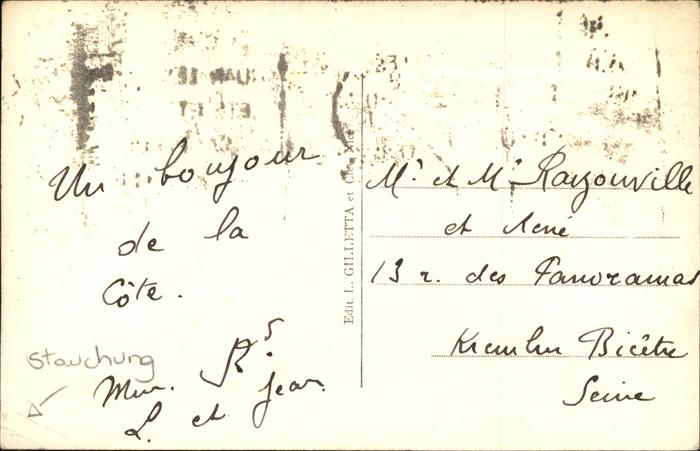 Un bonjour
de la
Côte.
Stauchung
L. et Jean
Edit. L. GILLETTA et Cie
Mr et Me Rayonville
et René
13 r. des Panoramas
Kremlin Bicêtre
Seine